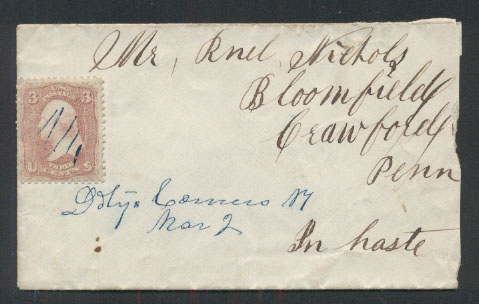 Mr, Ruel Nichols
Bloomfield
Crawford
Penn
3 3
U S
Dotys Corners NY
Mar 2
In haste